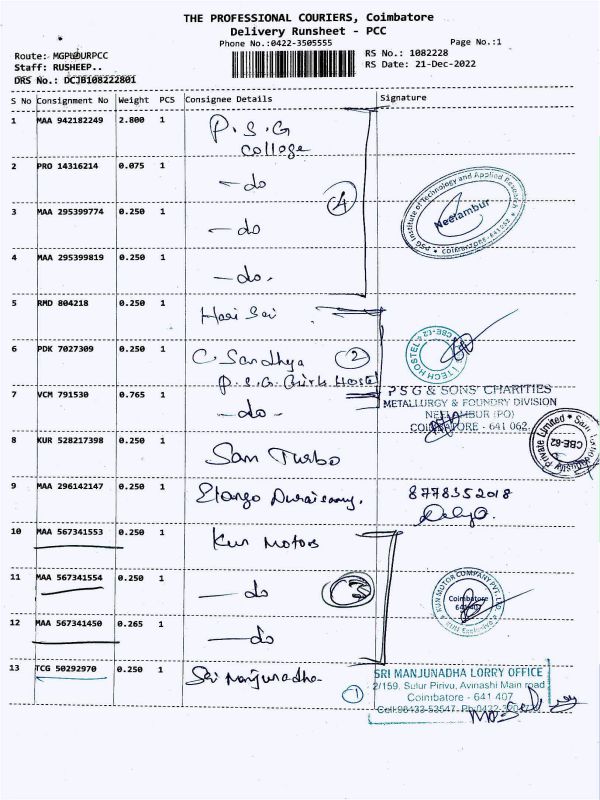 THE PROFESSIONAL COURIERS, Coimbatore
Delivery Runsheet - PCC
Phone No.:0422-3505555
Page No.:1
Route:
Staff: RUSHEEP..
DRS No.: DCJB108222801
RS No.: 1082228
RS Date: 21-Dec-2022
S No Consignment No Weight PCS Consignee Details Signature
1 MAA 942182249 2.800 1 P.S.G
College
2 PRO 14316214 0.075 1 - do
4
3 MAA 295399774 0.250 1 - do
PSG Institute of Technology and Applied Research
Neelambur
COIMBATORE-641 062
4 MAA 295399819 0.250 1 - do.
5 RMD 804218 0.250 1 Hari Sri
6 PDK 7027309 0.250 1 C. Sandhya 2
P.S.G. Girls Hostel
iTECH HOSTEL CBE-62
7 VCM 791530 0.765 1 - do -
PSG & SONS' CHARITIES
METALLURGY & FOUNDRY DIVISION
NEELAMBUR (PO)
COIMBATORE - 641 062.
8 KUR 528217398 0.250 1 Sam Turbo
Private Limited
CBE-62
9 MAA 296142147 0.250 1 Elango Duraisamy.
8778352018
10 MAA 567341553 0.250 1 Kun Motors
11 MAA 567341554 0.250 1 - do 3
KUN MOTOR COMPANY PVT. LTD
Coimbatore
641407
12 MAA 567341450 0.265 1 - do
13 TCG 50292970 0.250 1 Sri Manjunadha
1
SRI MANJUNADHA LORRY OFFICE
2/159, Sulur Pirivu, Avinashi Main road
Coimbatore - 641 407
Cell:98433-53547